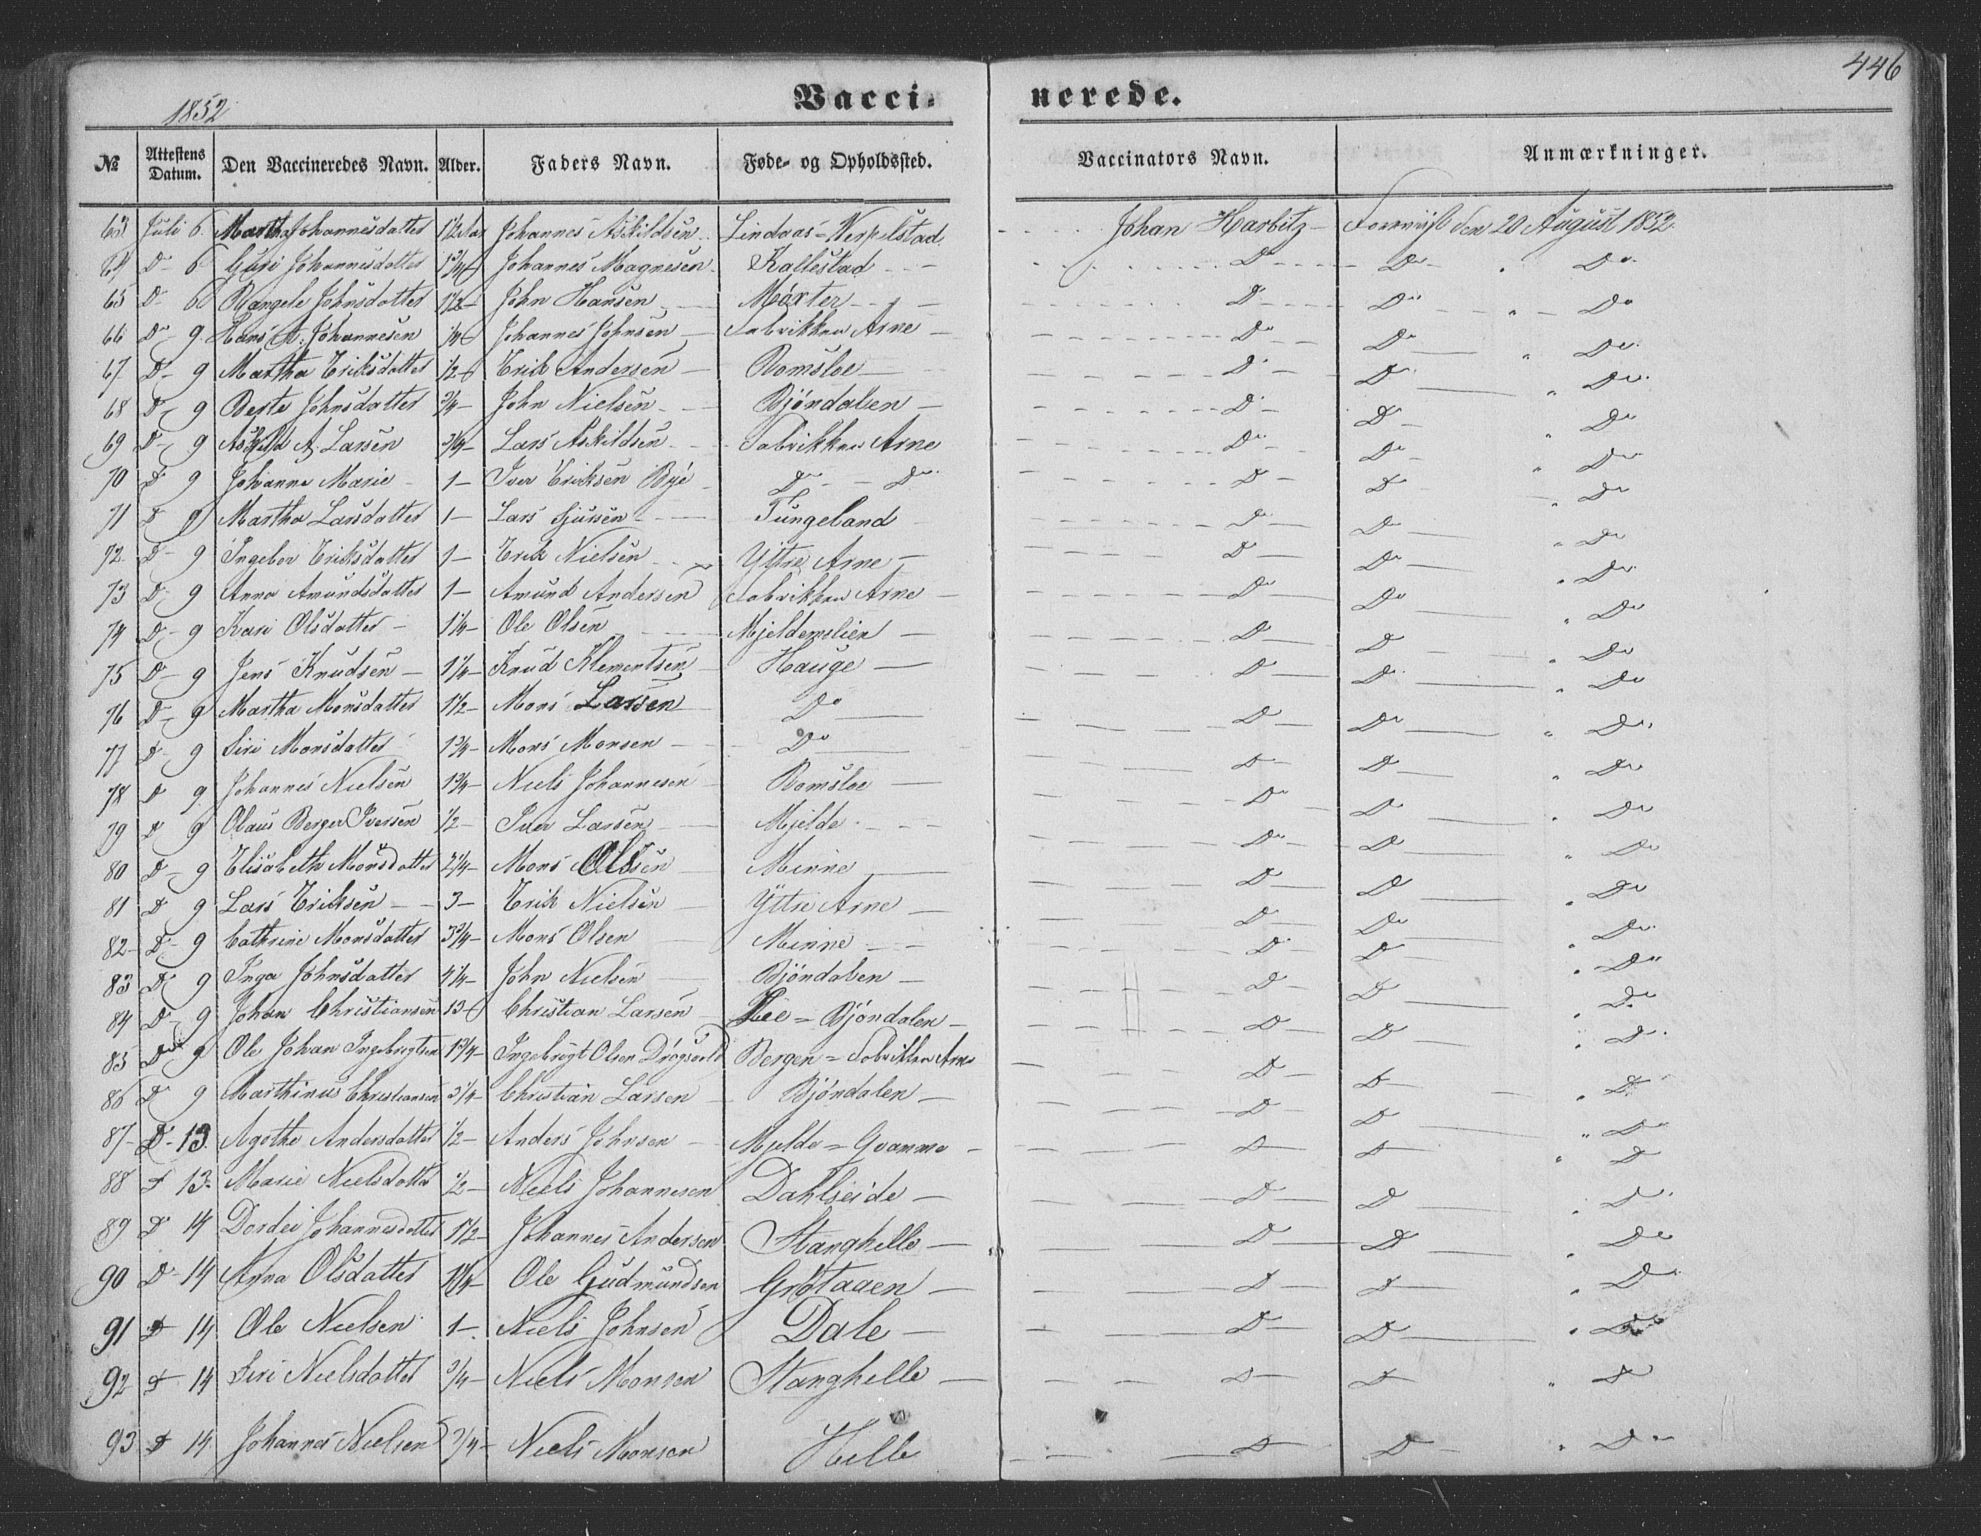 446
1852
Vacci-nerede.
№ Attestens Datum. Den Vaccineredes Navn. Alder. Faders Navn. Føde- og Opholdssted. Vaccinators Navn. Anmærkninger.
63 Juli 6 Martha Johannesdatter 1 1/2 Aar Johannes Askildsen Lindaas = Johan Harbitz den 20 August 1852
64 Do 6 Guri Johannesdatter 1 3/4 Johannes Magnesen Kallestad Do Do Do
65 Do 6 Johnsdatter 1 1/2 John Hansen Møxter Do Do Do
66 Do 9 Hans A. Johannesen 1/4 Johannes Johnsen Fabrikken Arne Do Do Do
67 Do 9 Martha Eriksdatter 1/2 Erik Andersen Romsloe Do Do Do
68 Do 9 Berte Johnsdatter 3/4 John Nielsen Bjöndalen Do Do Do
69 Do 9 Askild A. Larsen 3/4 Lars Askildsen Fabrikken Arne Do Do Do
70 Do 9 Johanna Marie 1 Iver Eriksen Bye Do Do Do Do Do
71 Do 9 Martha Larsdatter 1 Lars Sjursen Tungeland Do Do Do
72 Do 9 Ingebor Eriksdatter 1 Erik Nielsen Yttre Arne Do Do Do
73 Do 9 Anna Amundsdatter 1 Amund Andersen Fabrikken Arne Do Do Do
74 Do 9 Kari Olsdatter 1 1/4 Ole Olsen Mjeldemslien Do Do Do
75 Do 9 Jens Knudsen 1 1/4 Knud Klementsen Hauge Do Do Do
76 Do 9 Martha Monsdatter 1 1/2 Mons Larsen Do Do Do Do
77 Do 9 Siri Monsdatter 1 3/4 Mons Monsen Do Do Do Do
78 Do 9 Johannes Nielsen 1 3/4 Niels Johannesen Romsloe Do Do Do
79 Do 9 Olaus Berger Iversen 1/2 Iver Larsen Mjelde Do Do Do
80 Do 9 Elisabeth Monsdatter 2 1/4 Mons Olsen Minne Do Do Do
81 Do 9 Lars Eriksen 3 Erik Nielsen Yttre Arne Do Do Do
82 Do 9 Cathrine Monsdatter 3 3/4 Mons Olsen Minne Do Do Do
83 Do 9 Inga Johnsdatter 4 1/4 John Nielsen Bjöndalen Do Do Do
84 Do 9 Johan Christiansen 13 Christian Larsen Lee = Bjöndalen Do Do Do
85 Do 9 Ole Johan Ingebrigtsen 1 3/4 Ingebrigt Olsen Bergen = Fabrikken Arne Do Do Do
86 Do 9 Marthinus Christiansen 3/4 Christian Larsen Bjöndalen Do Do Do
87 Do 13 Agothe Andersdatter 1/2 Anders Johnsen Mjelde = Gvamme Do Do Do
88 Do 13 Marie Nielsdatter 1/2 Niels Johannesen Dahlseide Do Do Do
89 Do 14 Dordei Johannesdatter 1 1/2 Johannes Andersen Stanghelle Do Do Do
90 Do 14 Anna Olsdatter 1 1/4 Ole Gudmundsen Grøtaaen Do Do Do
91 Do 14 Ole Nielsen 1 Niels Johnsen Dale Do Do Do
92 Do 14 Siri Nielsdatter 3/4 Niels Monsen Stanghelle Do Do Do
93 Do 14 Johannes Nielsen 3/4 Niels Monsen Helle Do Do Do